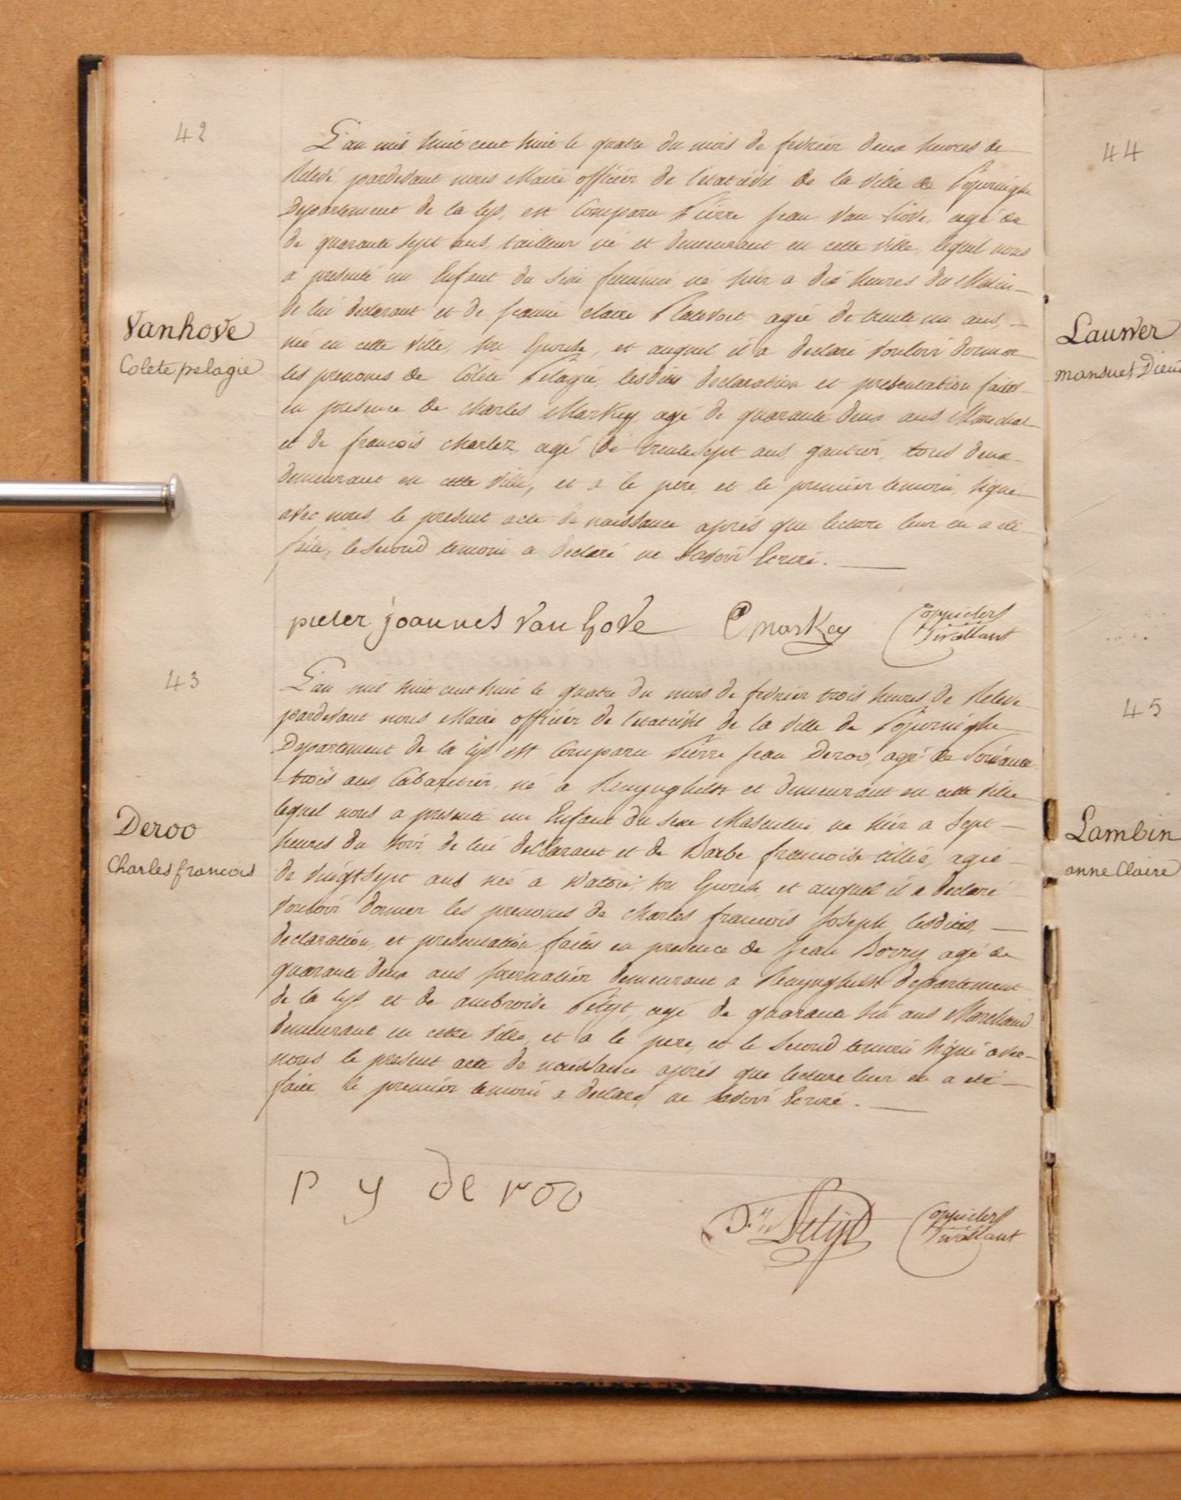 42
Vanhove
Colete pelagie
L'an mil huit cent huit le quatre du mois de fevrier deux heures de
Relevé pardevant nous Maire officier de l'etat civil de la ville de Poperinghe
Departement de la Lys, est Comparu Pierre Jean Van Hove, agé de
de quarante sept ans, tailleur né et demeurant en cette ville, lequel nous
a presenté un Enfant du Sexe feminin né hier a dix heures du Matin
de lui declarant et de claire agée de trente un ans,
née en cette ville, Son Epouse, et auquel il a declaré Vouloir donner
les prenoms de Colete Pelagie, lesdites declaration et presentation faites
en presence de Charles Markey agé de quarante deux ans Marechal
et de francois Charlez, agé de trente sept ans, tous deux
demeurant en cette Ville, et a le pere et le premier temoin Signé
avec nous le present acte de naissance apres que lecture leur en a eté
faite, le Second temoin a declaré ne Savoir Ecrire.
pieter joannes Van hove
C Markey
43
Deroo
Charles francois
L'an mil huit cent huit le quatre du mois de fevrier trois heures de Relevé
pardevant nous Maire officier de l'etat civil de la Ville de Poperinghe
Departement de la Lys est Comparu Pierre Jean Deroo, agé de Soixante
trois ans Cabaretier, né a Renynghelst et demeurant en cette Ville
lequel nous a presenté un Enfant du Sexe Masculin, né hier a Sept
heures du Soir de lui declarant et de Barbe francoise tillie, agée
de Vingt Sept ans née a Watou, Son Epouse et auquel il a declaré
Vouloir donner les prenoms de Charles francois Joseph lesdites
declaration, et presentation faites en presence de Jean agé de
quarante deux ans Journalier demeurant a Renynghelst departement
de la Lys et de ambroise agé de quarante ans Marchand
demeurant en cette Ville, et a le pere, et le Second temoin Signé avec
nous le present acte de naissance aprés que lecture leur en a eté
faite le premier temoin a declaré ne Savoir Ecrire.
P y de roo
44
Lauwer
45
Lambin
anne Claire